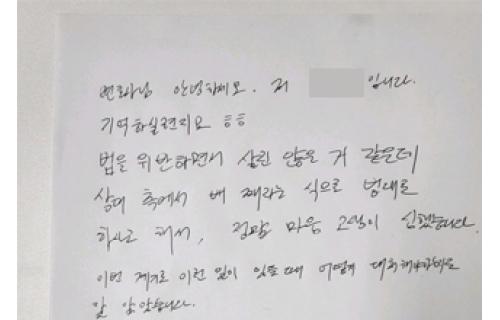 변호사님 안녕하세요. 저 입니다.
기억하실런지요 ㅎㅎ
법을 위반하면서 살진 않은 거 같은데
상대 측에서 배 째라는 식으로 법대로
하자고 해서, 정말 마음 고생이 심했습니다.
이번 계기로 이런 일이 있을 때 어떻게 대처해야하는
알 았습니다.